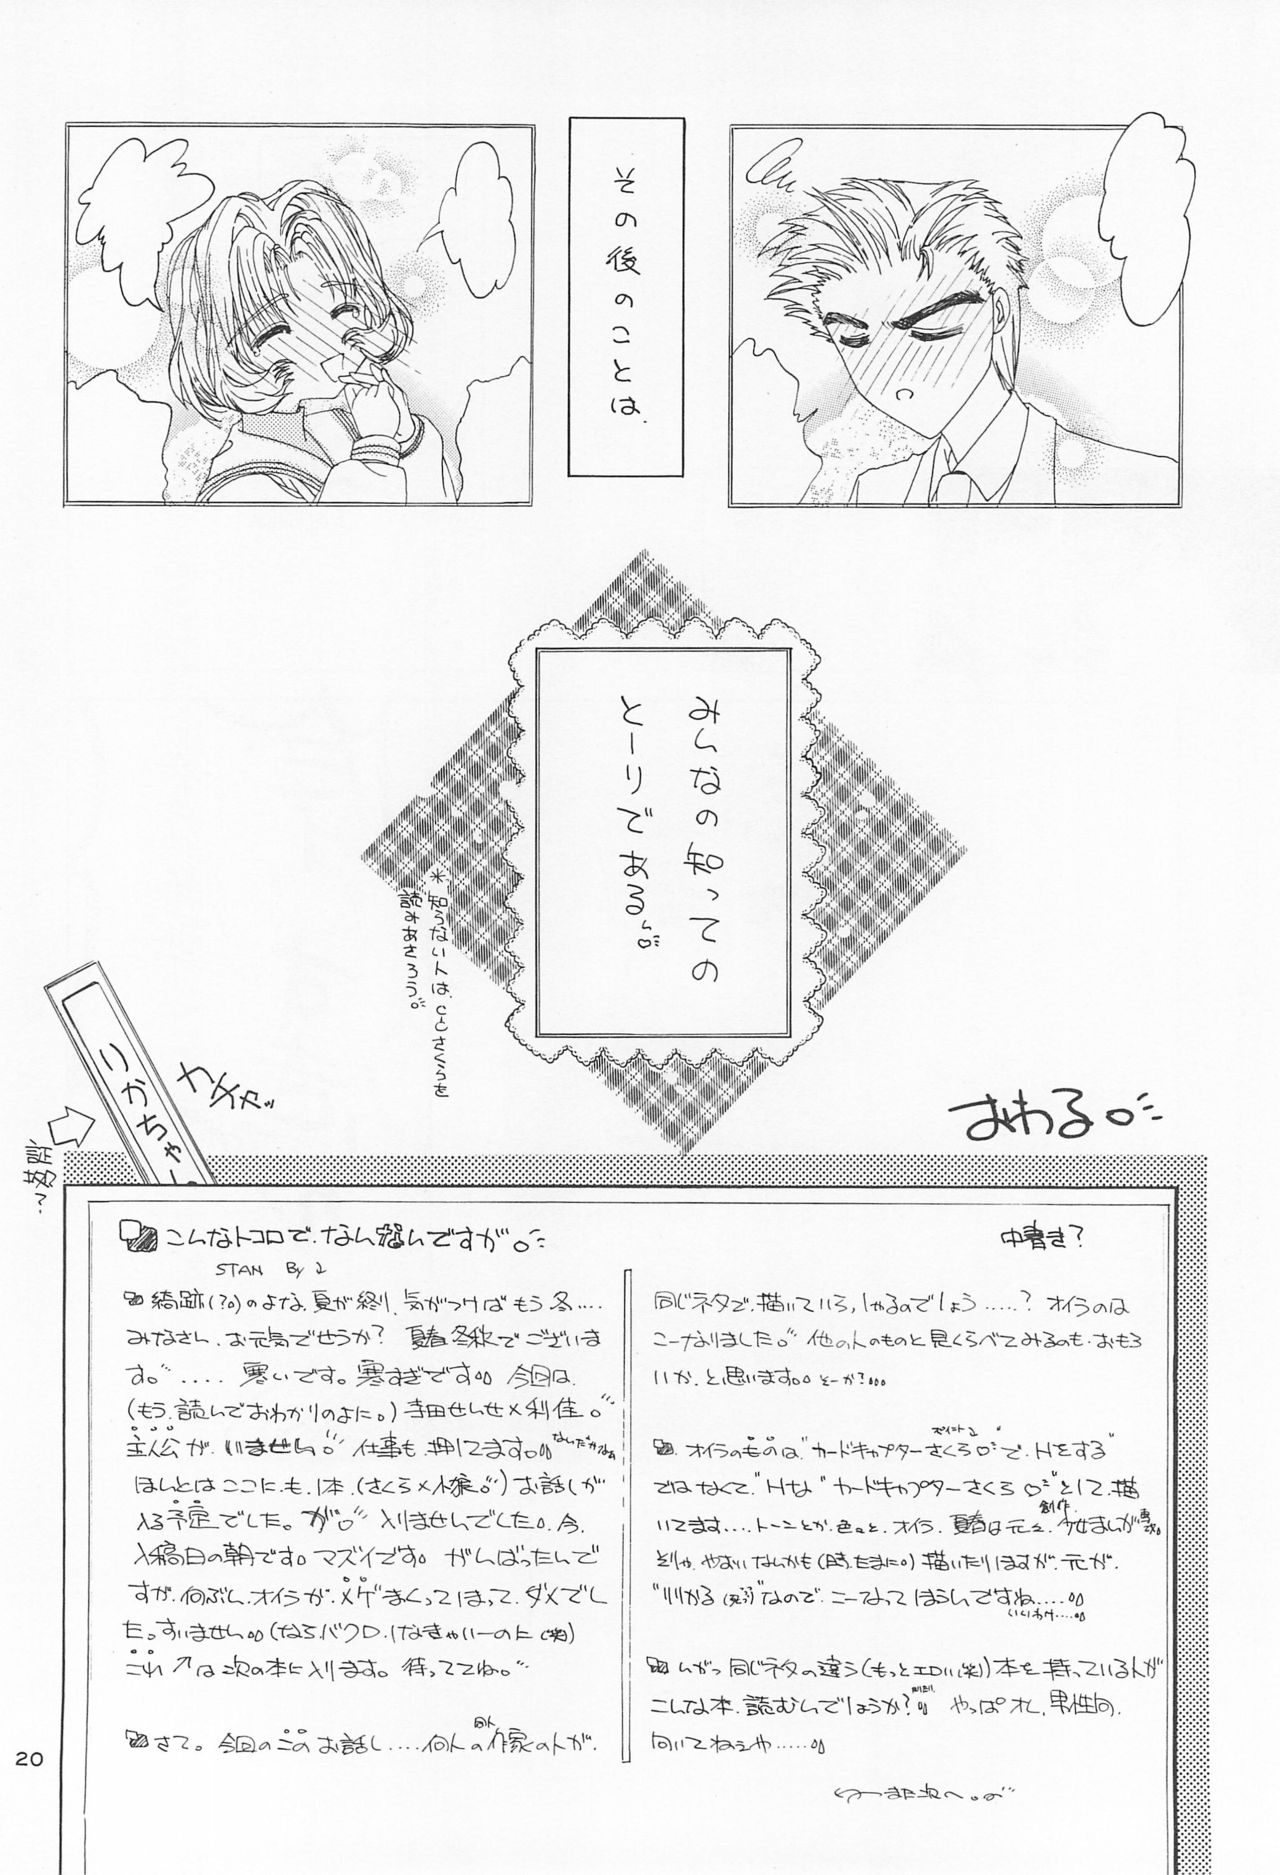 その後のことは、
みんなの知っての
とーりである。
*知らない人は、CCさくらを
読みあさろう。
おわる
カチャッ
りかちゃん
こんなトコロで、なんなんですが。
中書き?
STAN By 2
綺跡(?)のよな、夏が終り、気がつけばもう冬....
みなさん、お元気でせうか? 夏春冬秋でございま
す。.... 寒いです。寒すぎです 今回は、
(もう、読んでおわかりのよに。)寺田せんせ×利佳。
主人公が、いません。仕事も、押してます。
ほんとはここに、も、1本、(さくら×小狼)お話しが
入る予定でした。が 入りませんでした。今、
入稿日の朝です。マズイです。がんばったんで
すが、何ぶん、オイラが、メゲまくってしまって、ダメでし
た。すいません
これ↑は次の本に入ります。待っててね。
さて。今回のこのお話し....何人の作家の人が、
同じネタで、描いていらっしゃるのでしょう.....? オイラのは
こーなりました。他の人のものと見くらべてみるのも、おもろ
いか、と思います。そーか?
オイラのものは"カードキャプターさくら"で、Hをする"
ではなくて、"Hな"カードキャプターさくら"として、描
いてます....トーンとか、色々と、オイラ、夏春は元々、創作少女まんが
そりゃ、やおいなんかも(時、たまに。)描いたりしますが、元が、
なので、こーなってしまうんですね....
いいわけ....
同じネタの違う(もっとエロい(笑))本を持っている人が
こんな本、読むんでしょうか? やっぱオレ、男性向、
向いてねぇや.....
また次へ。
20